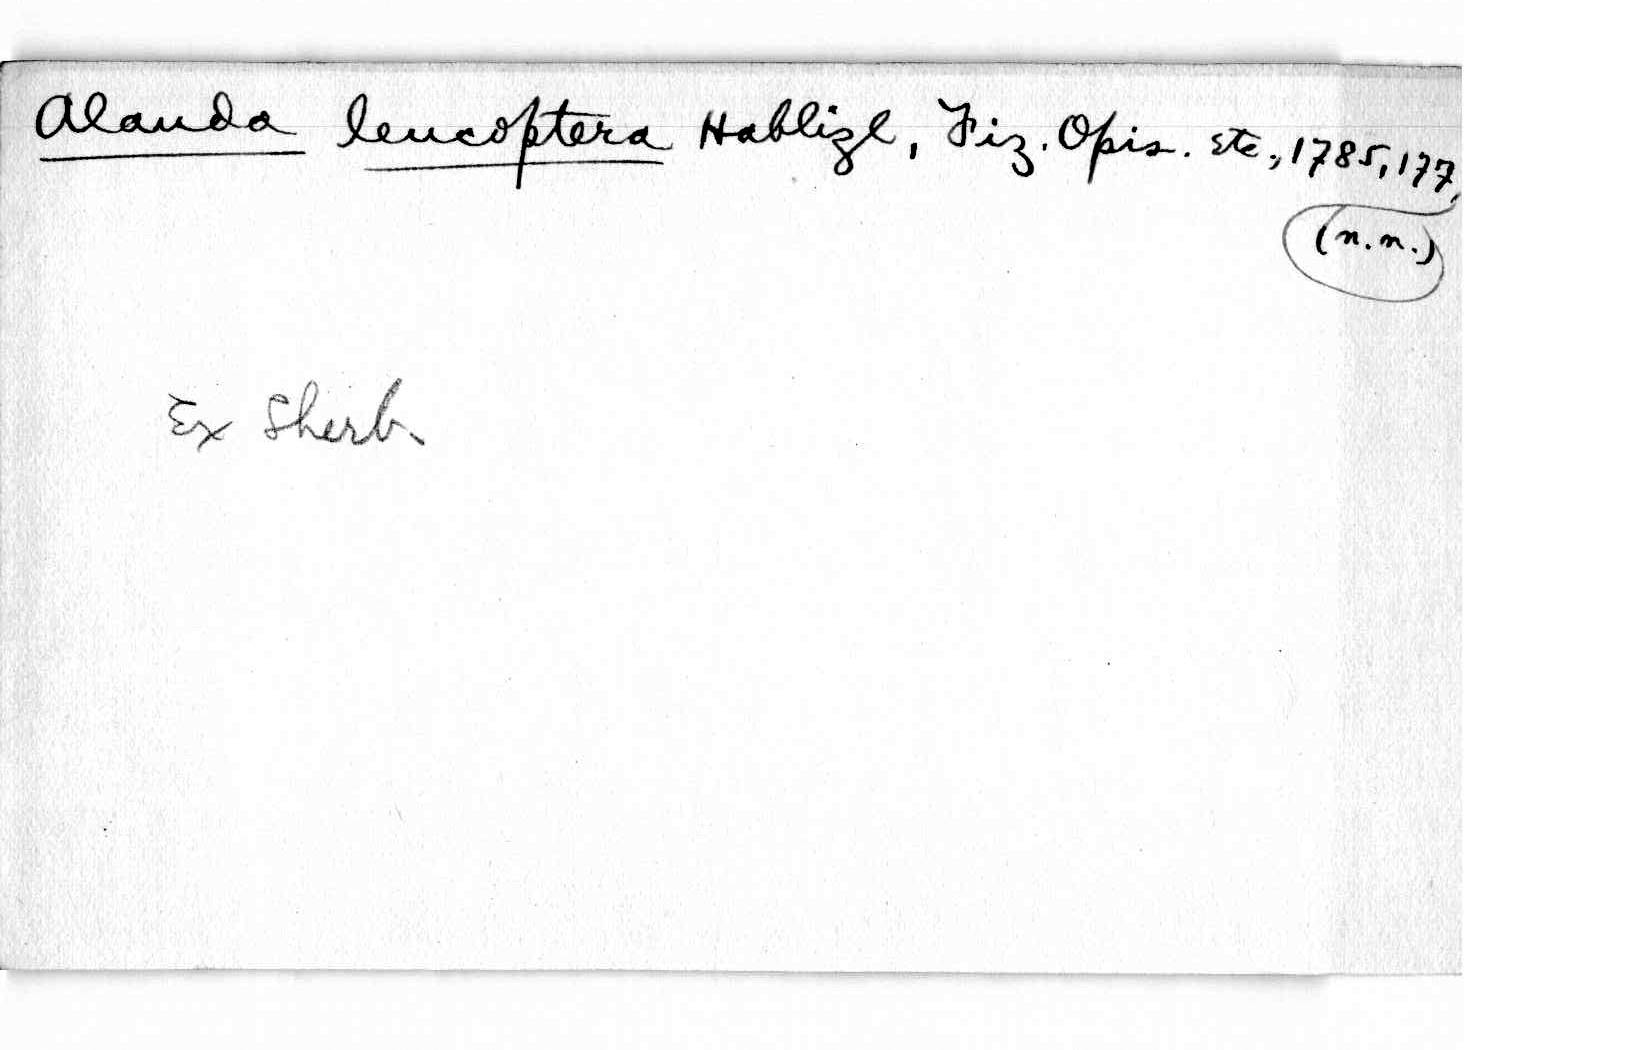 Alauda leucoptera Hablizl, Fiz. Opis. etc., 1785, 177,
(n.n.)
Ex Sherb.